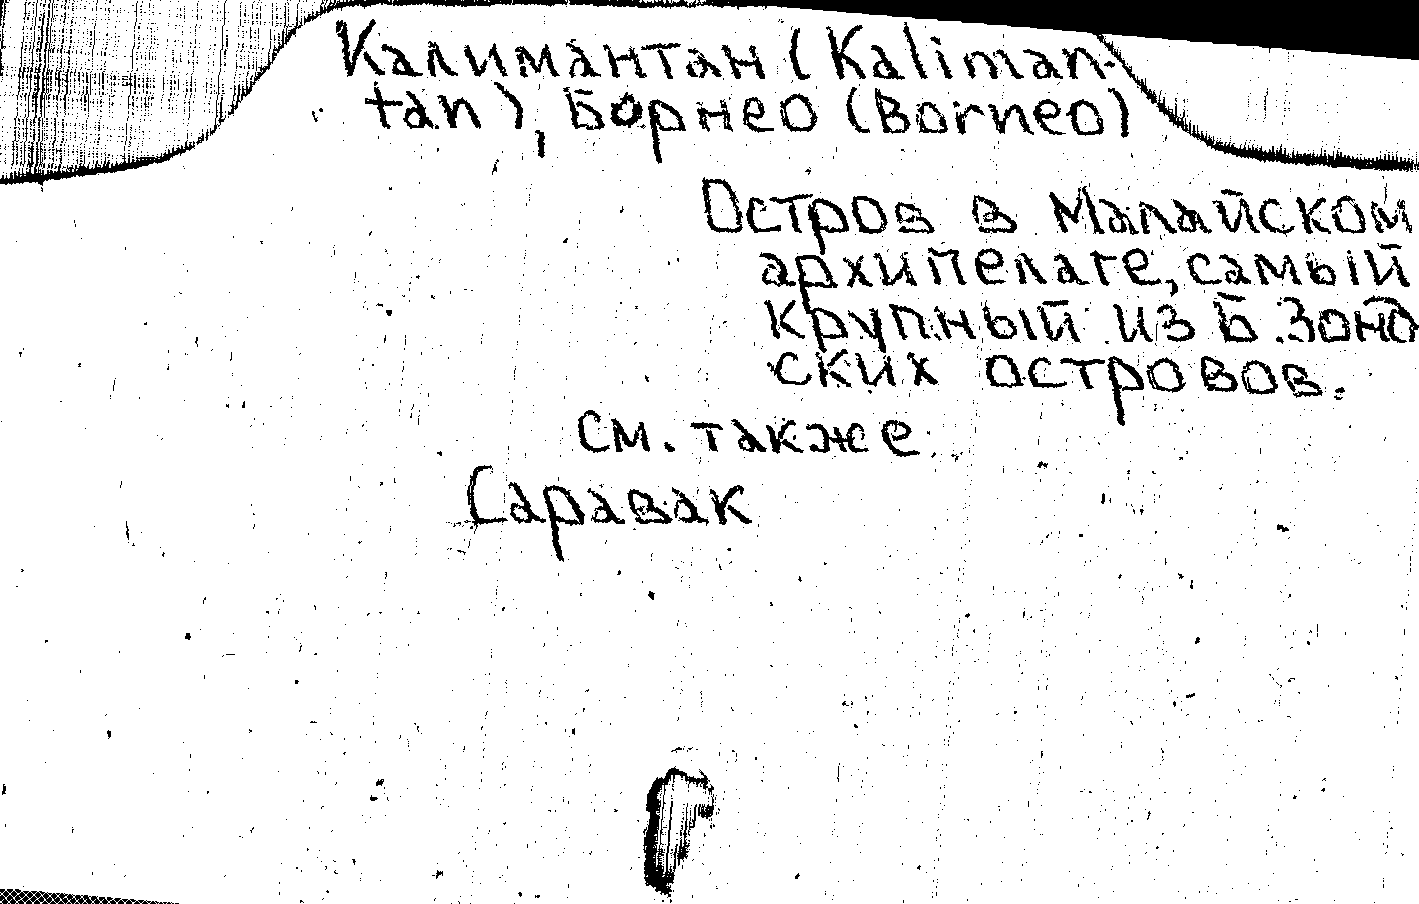 Калимантан (Kaliman-
tan), Борнео (Borneo)
Остров в Малайском
архипелаге, самый
крупный из Б. Зонд
ских островов.
см. также
Саравак